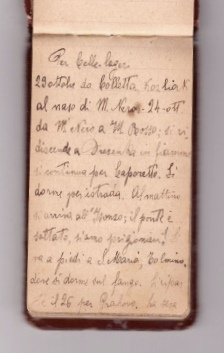 Per Cellelager
23 ottobre da Colletta Kozliak
al naso di M. Nero - 24 - ott
da M. Nero a M. Rosso; si ri
discende a Dresenka in
si continua per Caporetto. Si
dorme per istrada. Al mattino
si arriva all'Isonzo; il ponte è
saltato, siamo prigionieri. Si
va a piedi a S. Maria Tolmino,
dove si dorme sul fango.
il 26 per Grahovo. La sera